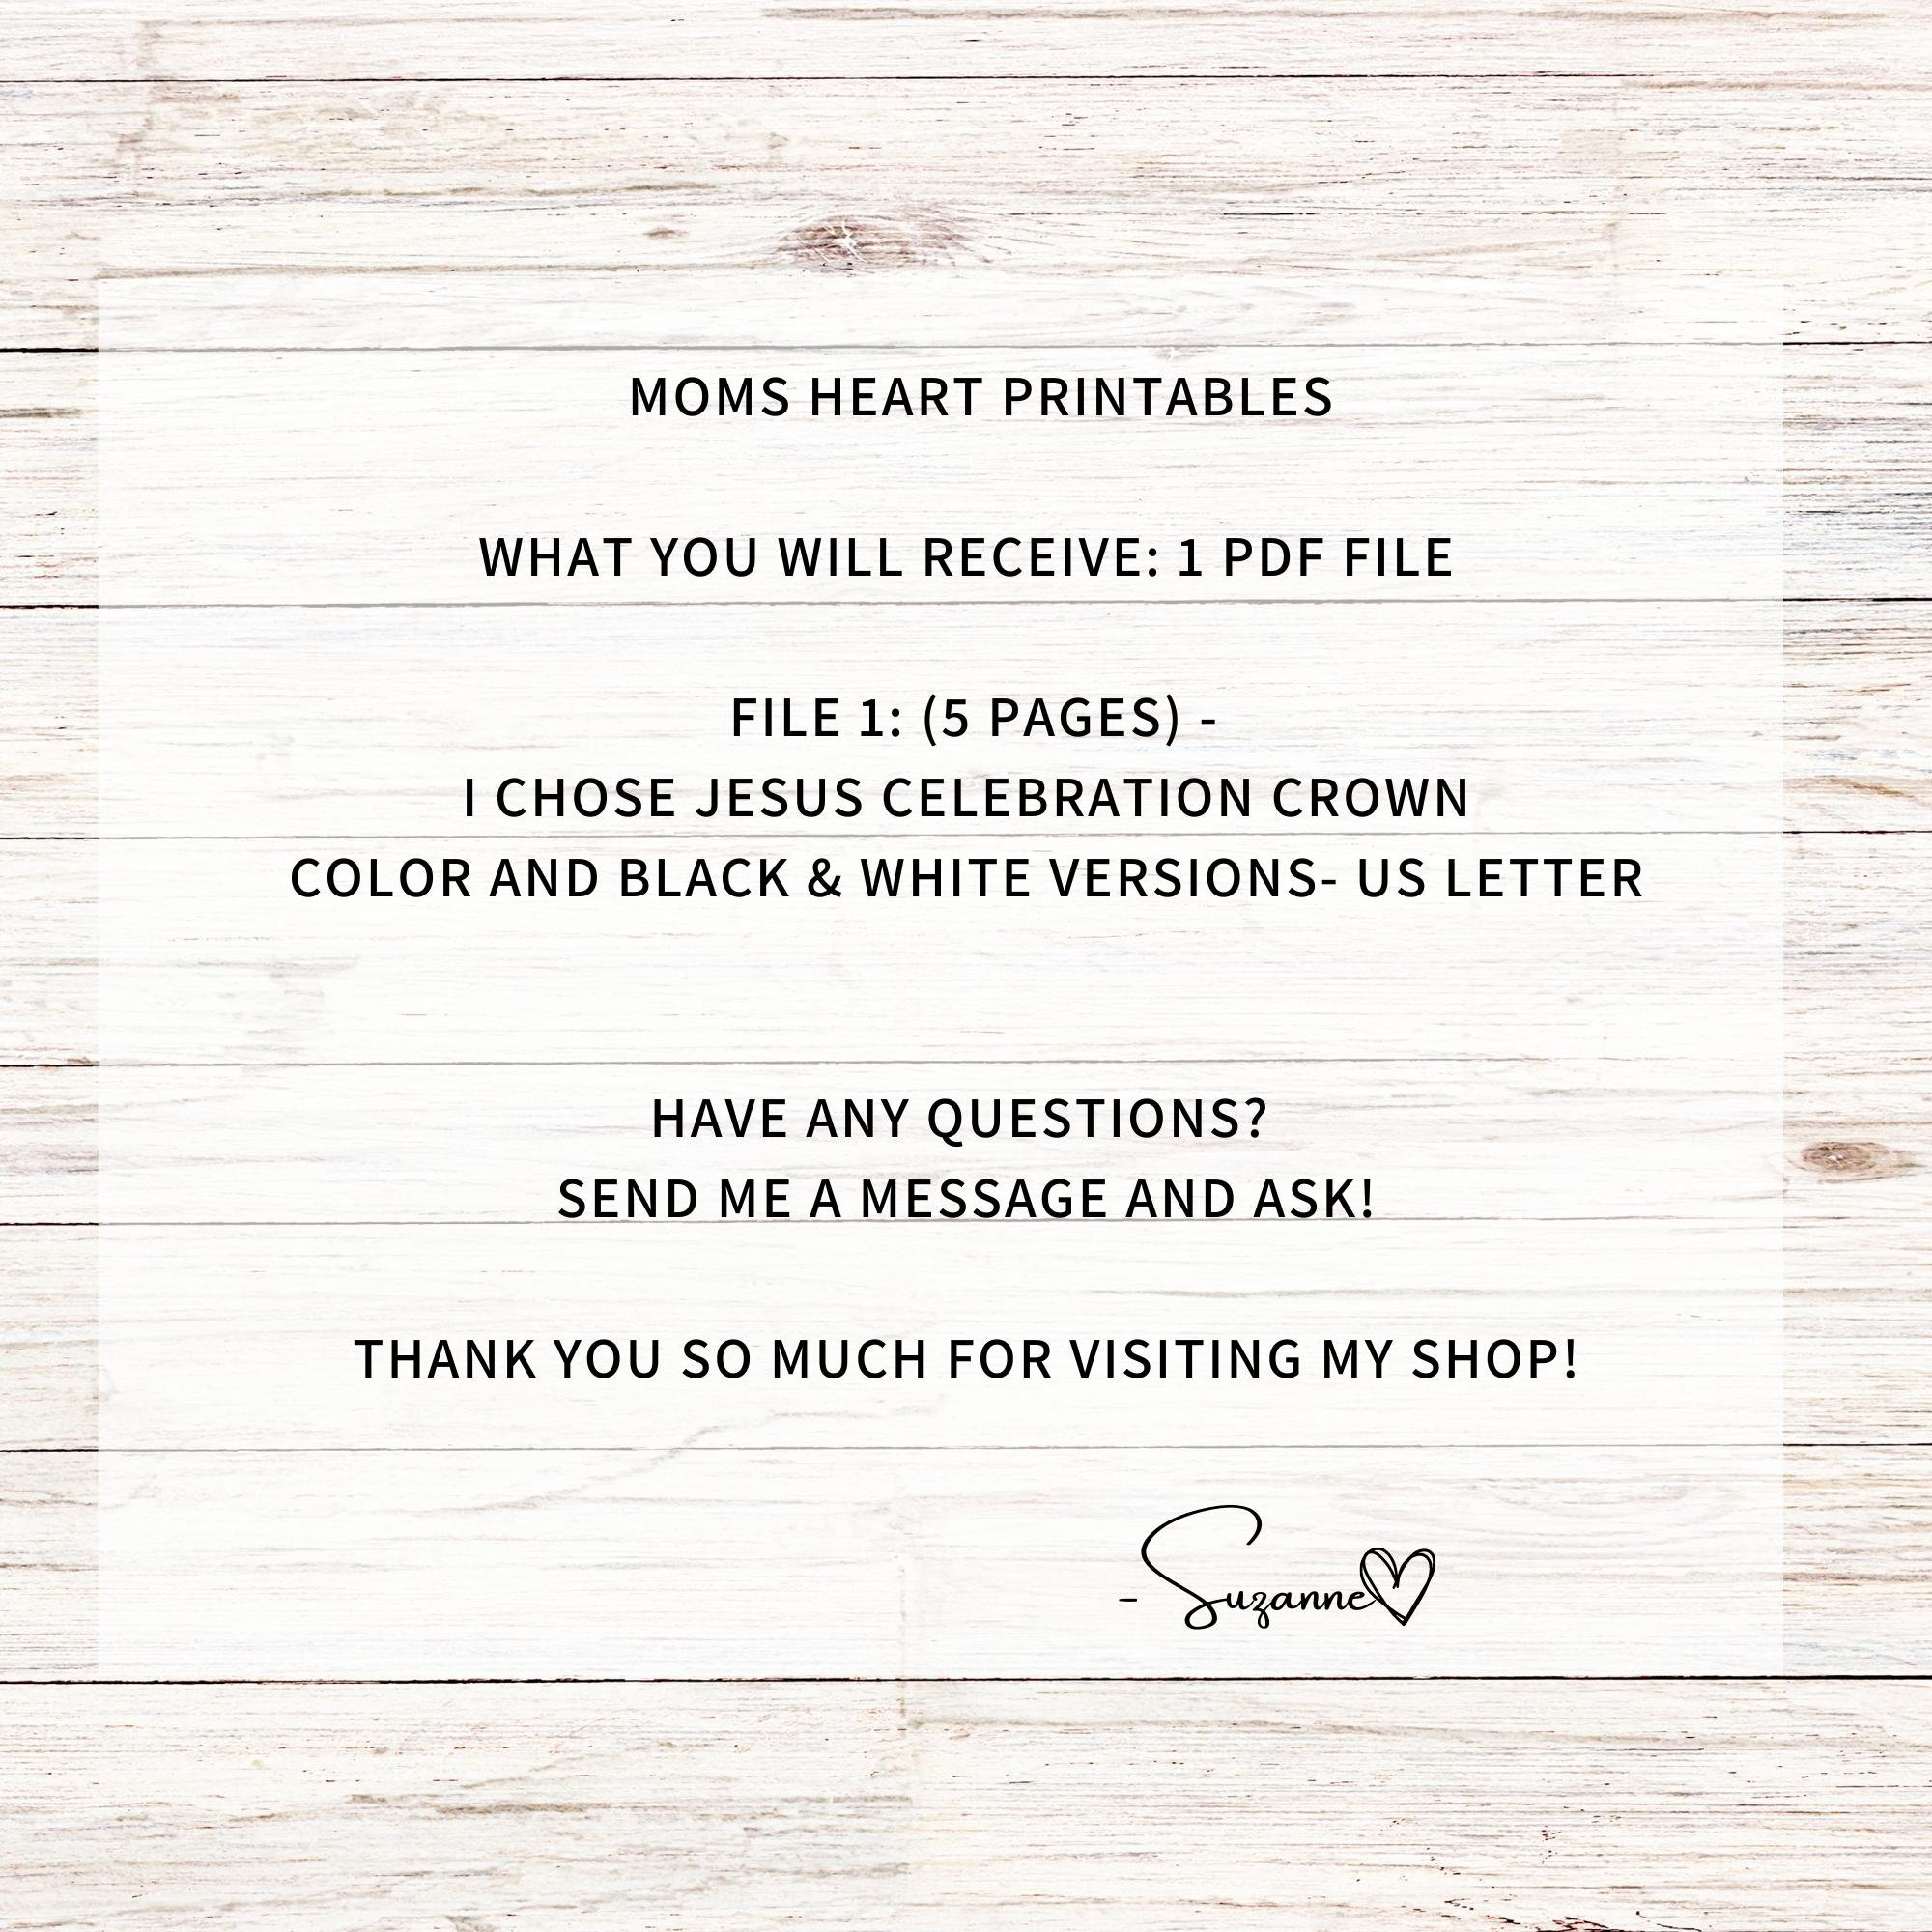 MOMS HEART PRINTABLES
WHAT YOU WILL RECEIVE: 1 PDF FILE
FILE 1: (5 PAGES) -
I CHOSE JESUS CELEBRATION CROWN
COLOR AND BLACK & WHITE VERSIONS- US LETTER
HAVE ANY QUESTIONS?
SEND ME A MESSAGE AND ASK!
THANK YOU SO MUCH FOR VISITING MY SHOP!
- Suzanne